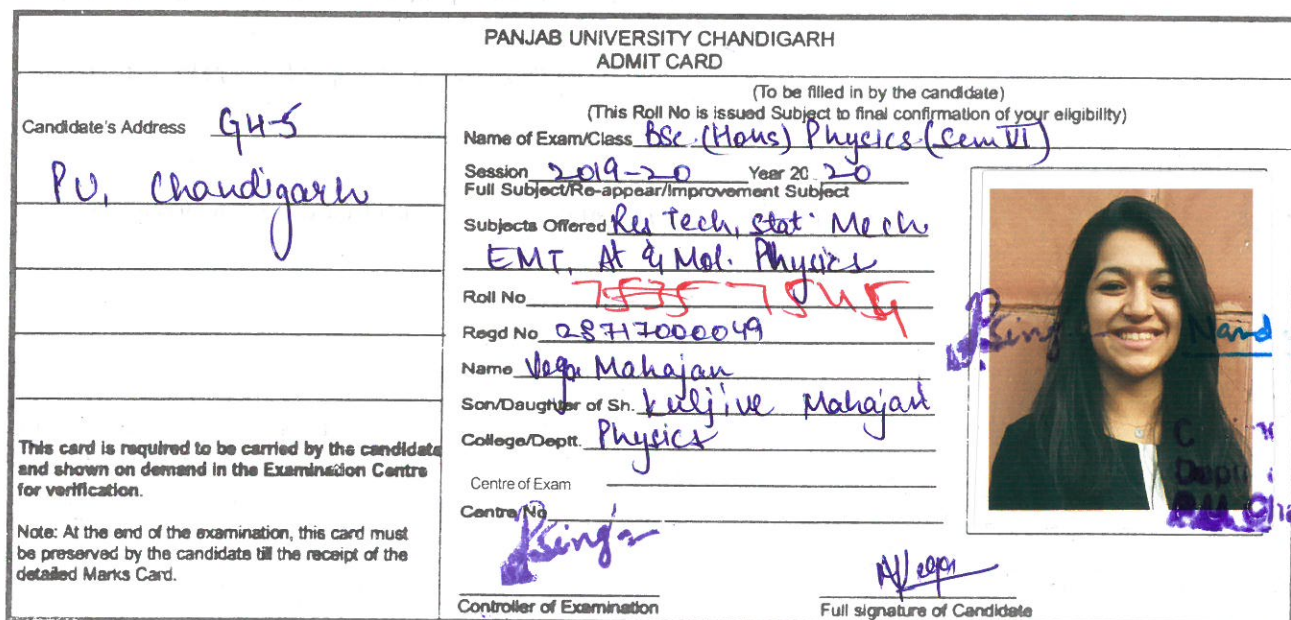 PANJAB UNIVERSITY CHANDIGARH
ADMIT CARD
Candidate's Address GH-5
PU, Chandigarh
This card is required to be carried by the candidate
and shown on demand in the Examination Centre
for verification.
Note: At the end of the examination, this card must
be preserved by the candidate till the receipt of the
detailed Marks Card.
(To be filled in by the candidate)
(This Roll No is issued Subject to final confirmation of your eligibility)
Name of Exam/Class BSc. (Hons) Physics (Sem VI)
Session 2019-20 Year 20 20
Full Subject/Re-appear/Improvement Subject
Subjects Offered Res Tech, Stat. Mech
EMT, At & Mol. Physics
Roll No
Regd No 28717000049
Name Vega Mahajan
Son/Daughter of Sh. Kuljive Mahajan
College/Deptt. Physics
Centre of Exam
Centre/No
Controller of Examination
Full signature of Candidate